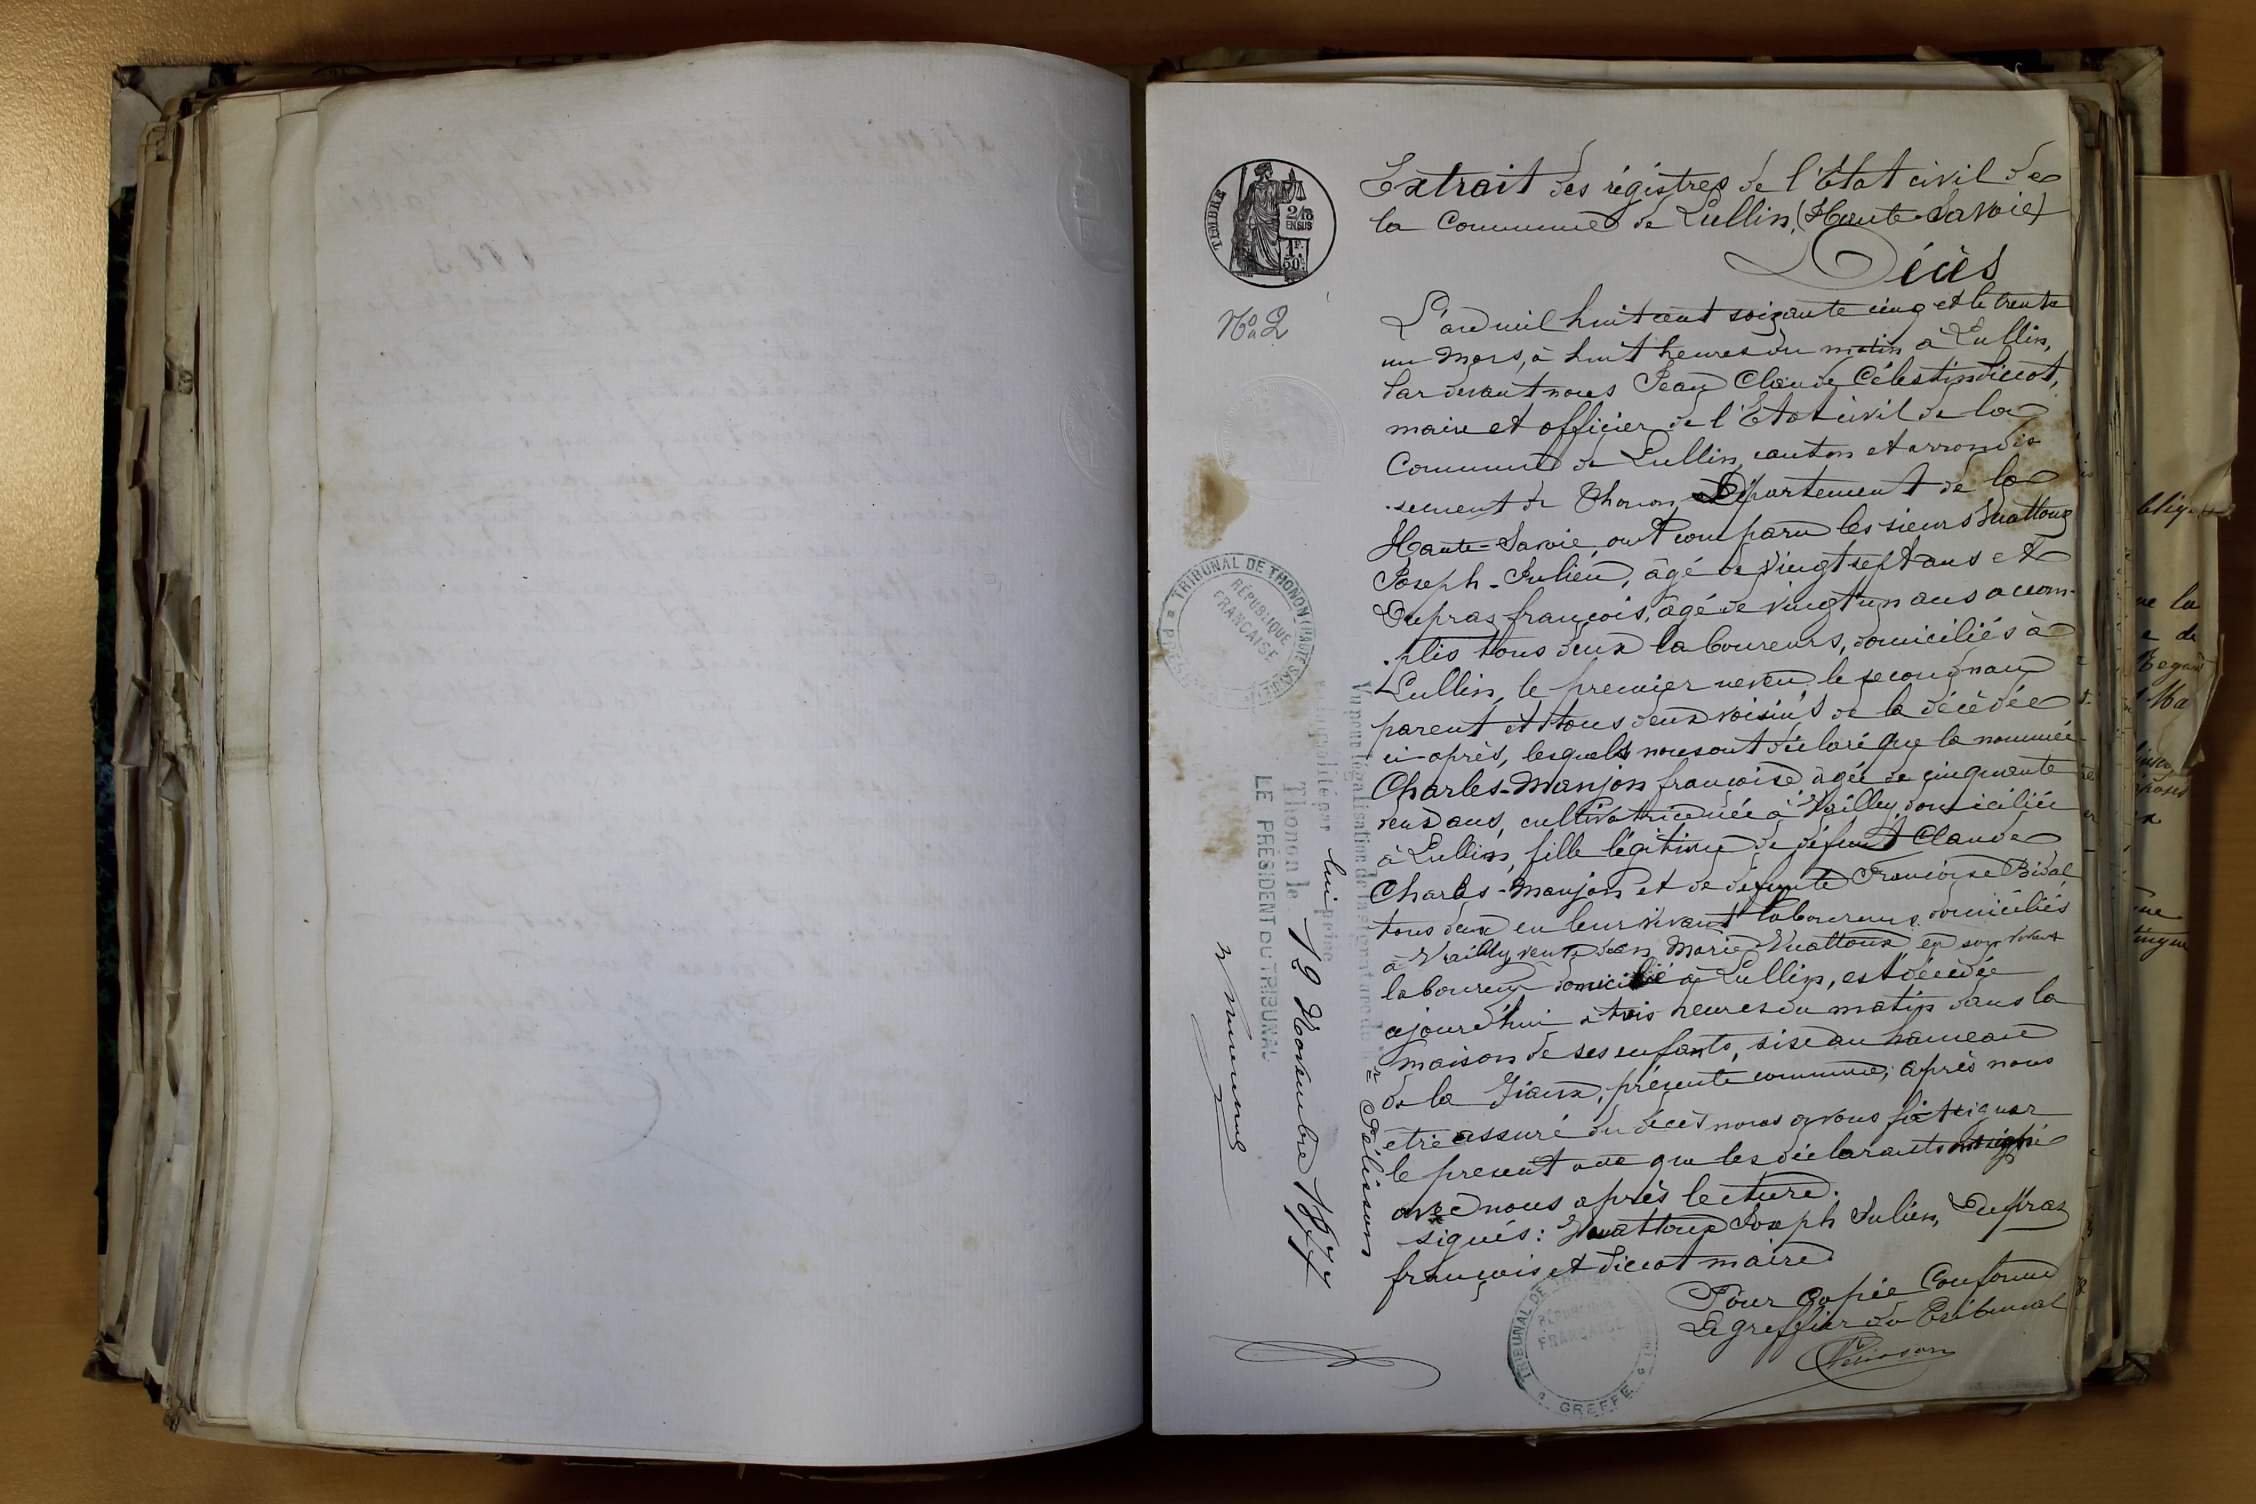 Extrait des régistres de l'Etat civil de
la Commune de Lullin, (Haute-Savoie)
Décès
TIMBRE
2/10
EN SUS
1F.
50c.
No 2
L'an mil huit cent soixante cinq et le trente
un Mars, à huit heures du matin à Lullin,
Par devant nous Jean Claude Célestin Diccot,
maire et officier de l'Etat civil de la
Commune de Lullin, canton et arrondis
-sement de Thonon, Département de la
Haute-Savoie, ont comparu les sieurs Vuattoux
Joseph-Julien, âgé de vingt sept ans et
Dupraz françois, âgé de vingt un ans accom-
-plis tous deux laboureurs, domiciliés à
Lullin, le premier neveu le second non
parent et tous deux voisins de la décédée
ci-après, lesquels nous ont déclaré que la nommée
Charles-Manjon françoise âgée de cinquante
deux ans, cultivatrice née à Vailly, domiciliée
à Lullin, fille légitime de défunt Claude
Charles-Manjon et de défunte Françoise Bidal
tous deux en leur vivant laboureurs domiciliés
à Vailly, veuve Jean Marie Vuattoux en son vivant
laboureur domicilié à Lullin, est décédée
ajourd'hui à trois heures du matin dans la
maison de ses enfants, sise au hameau
de la , présente commune, après nous
être assuré du décès nous avons fait signer
le présent acte que les déclarants ont signé
avec nous après lecture.
signés: Vuattoux Joseph Julien, Dupraz
françois et Diccot maire.
Pour Copie Conforme
Le greffier du Tribunal
Pélisson
TRIBUNAL DE THONON (HAUTE SAVOIE)
RÉPUBLIQUE
FRANÇAISE
Vu pour légalisation de la signature de Mr Pélisson
apposée par lui
Thonon le 12 Novembre 1877
LE PRÉSIDENT DU TRIBUNAL
TRIBUNAL DE
RÉPUBLIQUE
FRANÇAISE
GREFFE